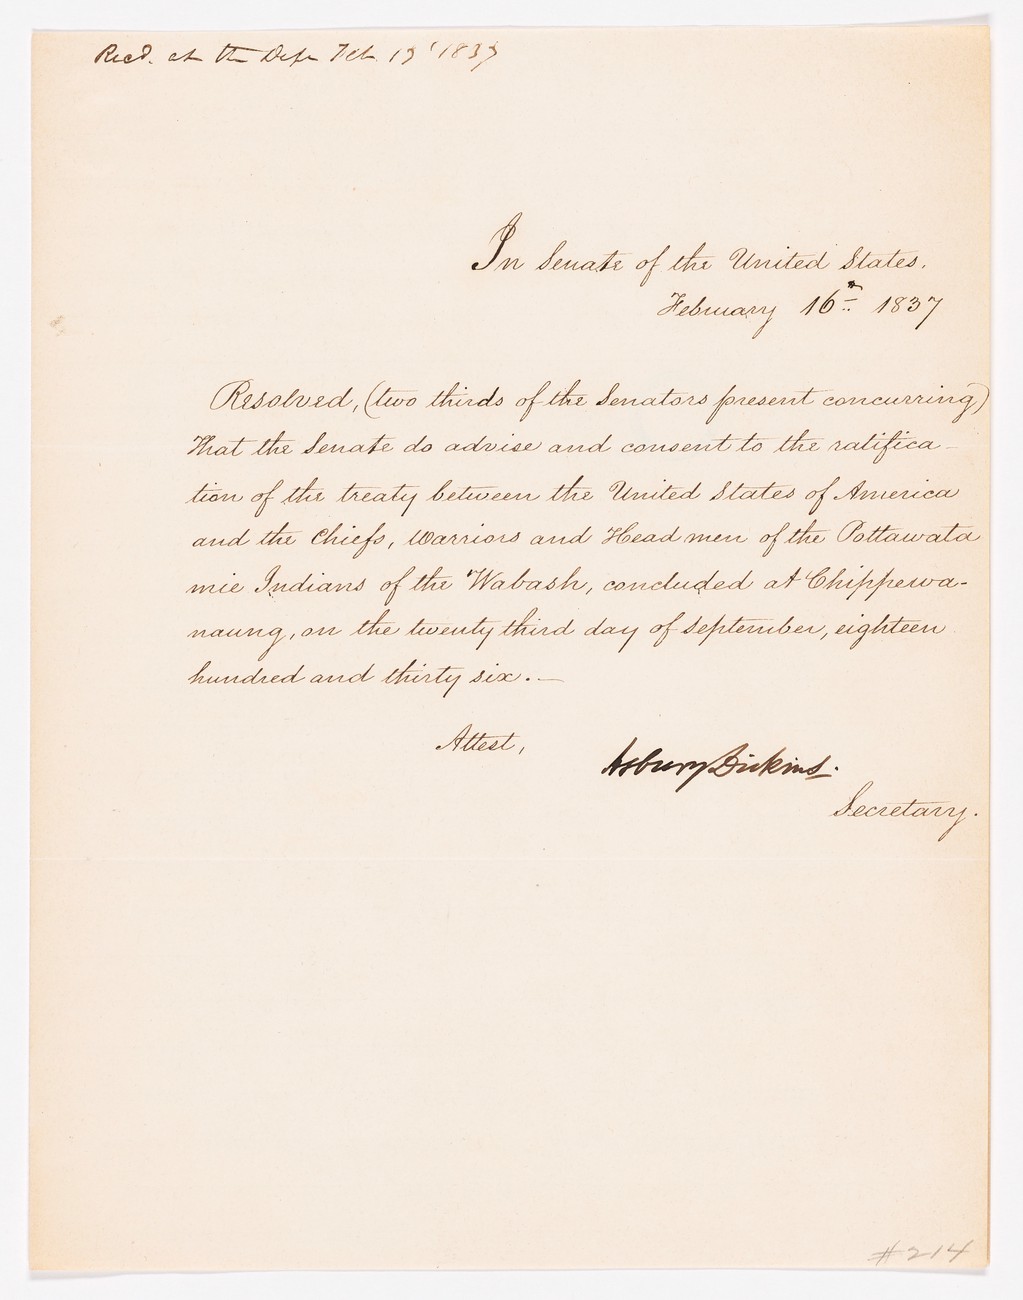 Recd. at the Dept Feb. 17 1837
In Senate of the United States.
February 16th 1837
Resolved, (two thirds of the Senators present concurring)
That the Senate do advise and consent to the ratifica-
tion of the treaty between the United States of America
and the Chiefs, Warriors and Headmen of the Pottawata
mie Indians of the Wabash, concluded at Chippewa-
naung, on the twenty third day of September, eighteen
hundred and thirty six.—
Attest,
Asbury Dickins.
Secretary.
#214